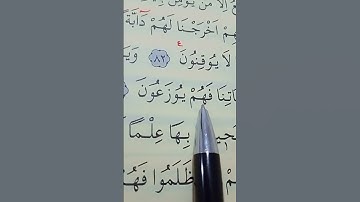 اِلَّا مَنْ يُؤْمِنُ
اَخْرَجْنَا لَهُمْ دَٓابَّةً
لَا يُوقِنُونَ ﴿٨٢﴾ وَيَ
اٰيَاتِنَا فَهُمْ يُوزَعُونَ
بِهَا عِلْمًا
ظَلَمُوا فَهُ